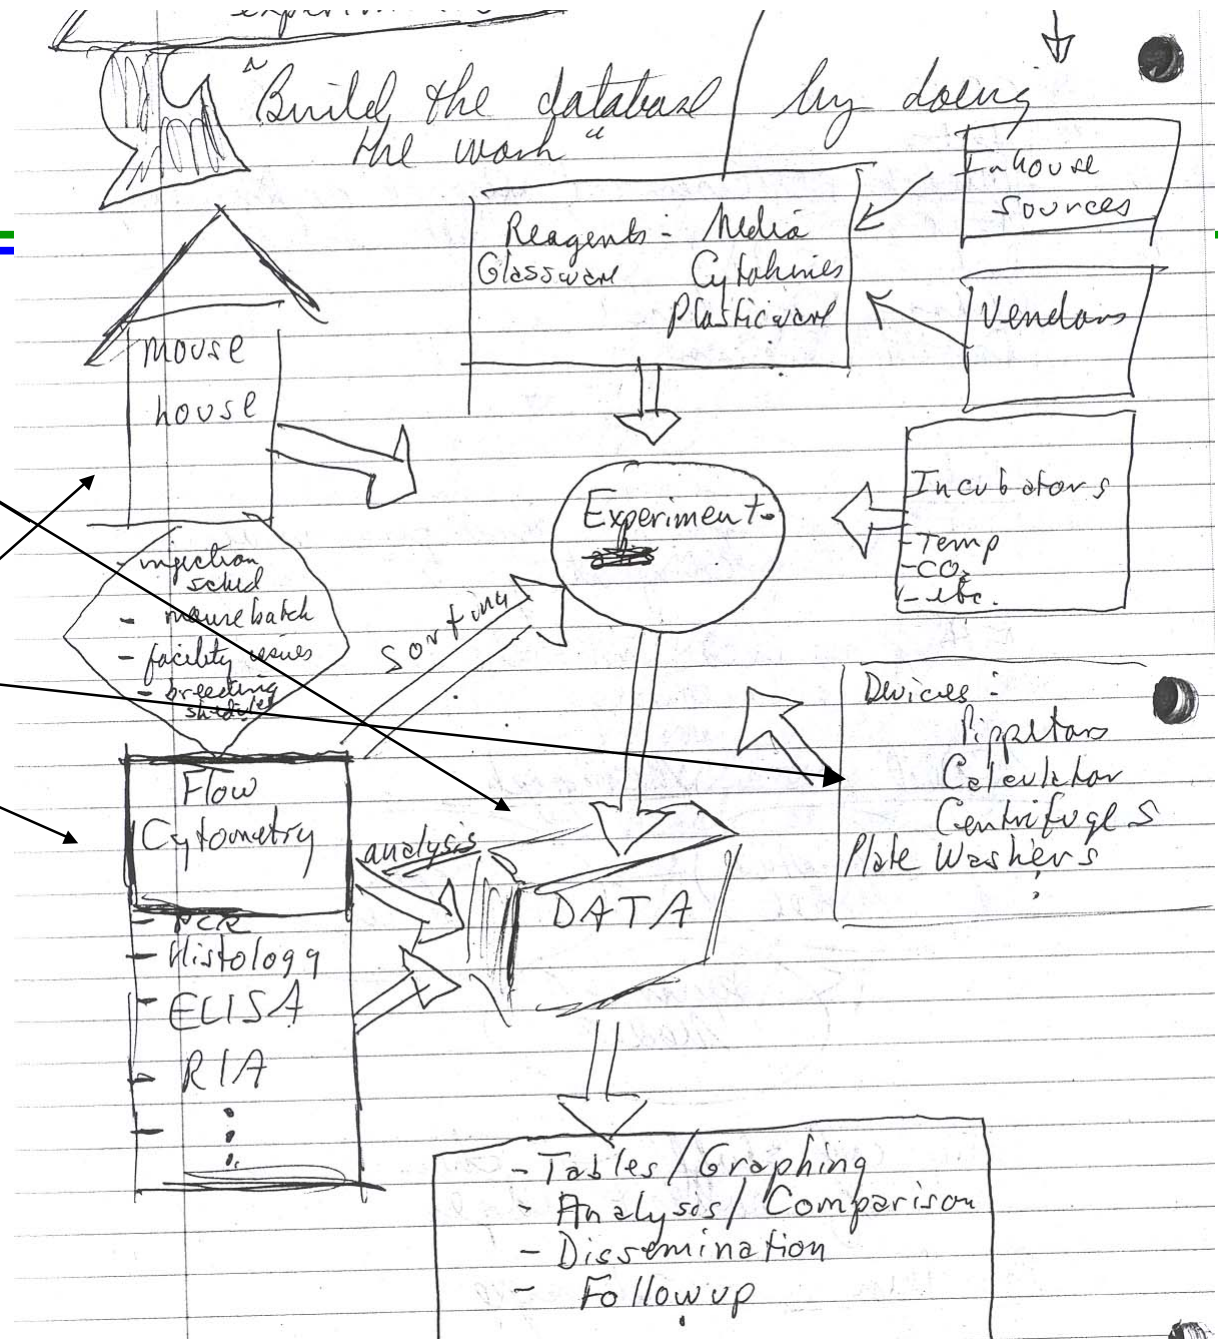 "Build the database by doing
the work"
Inhouse
Sources
Reagents - Media
Glassware Cytokines
Plasticware
Vendors
mouse
house
Incubators
- Temp
- CO2
- etc.
Experiment
- injection
sched
- mouse batch
- facility issues
- breeding
Sorting
Devices :
Pippetors
Calculator
Centrifuges
Plate Washers
Flow
Cytometry
analysis
DATA
- PCR
- Histology
- ELISA
- RIA
- Tables/Graphing
- Analysis/Comparison
- Dissemination
- Followup